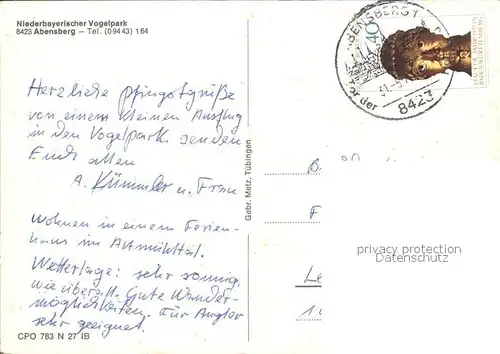 Niederbayerischer Vogelpark
8423 Abensberg — Tel. (09443) 164
Herzliche Pfingstgrüße
von einem kleinen Ausflug
in den Vogelpark senden
Euch allen
A. Kümmler u. Frau
Wohnen in einem Ferien-
haus im Altmühltal.
Wetterlage: sehr sonnig,
wie überall. Gute Wander-
möglichkeiten. Für Angler
sehr geeignet.
CPO 783 N 27 IB
Gebr. Metz, Tübingen
ABENSBERG 1
40
vor der
8423
privacy protection
Datenschutz